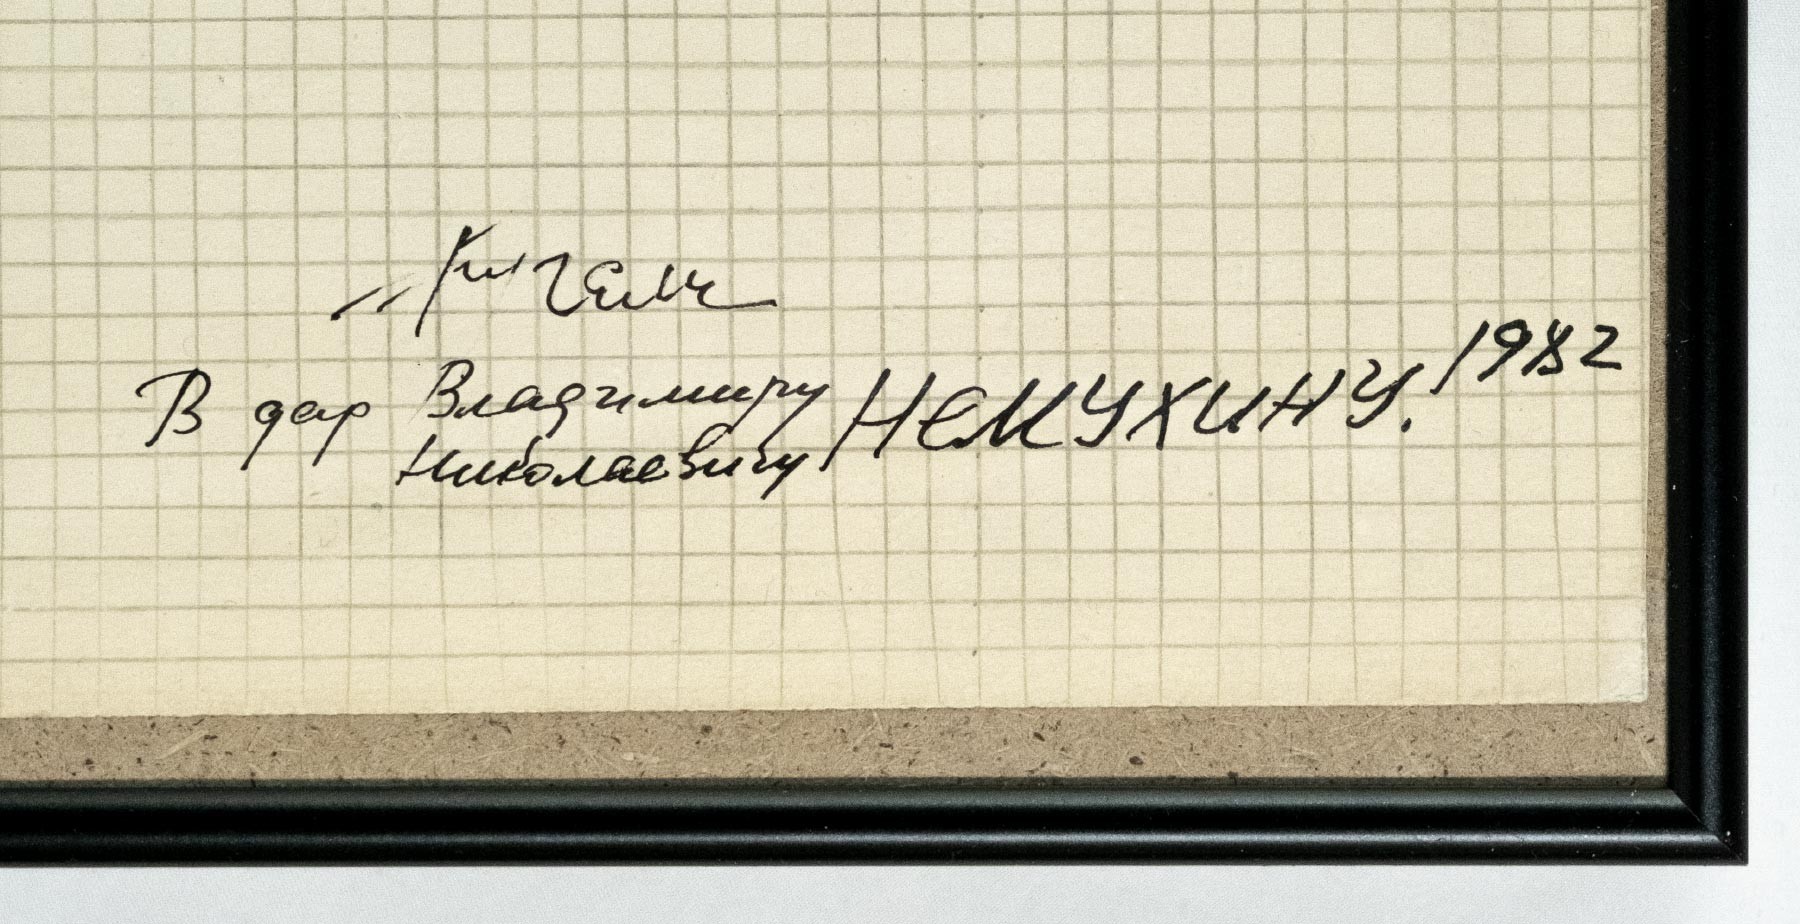 В дар Владимиру Николаевичу НЕМУХИНУ. 1982